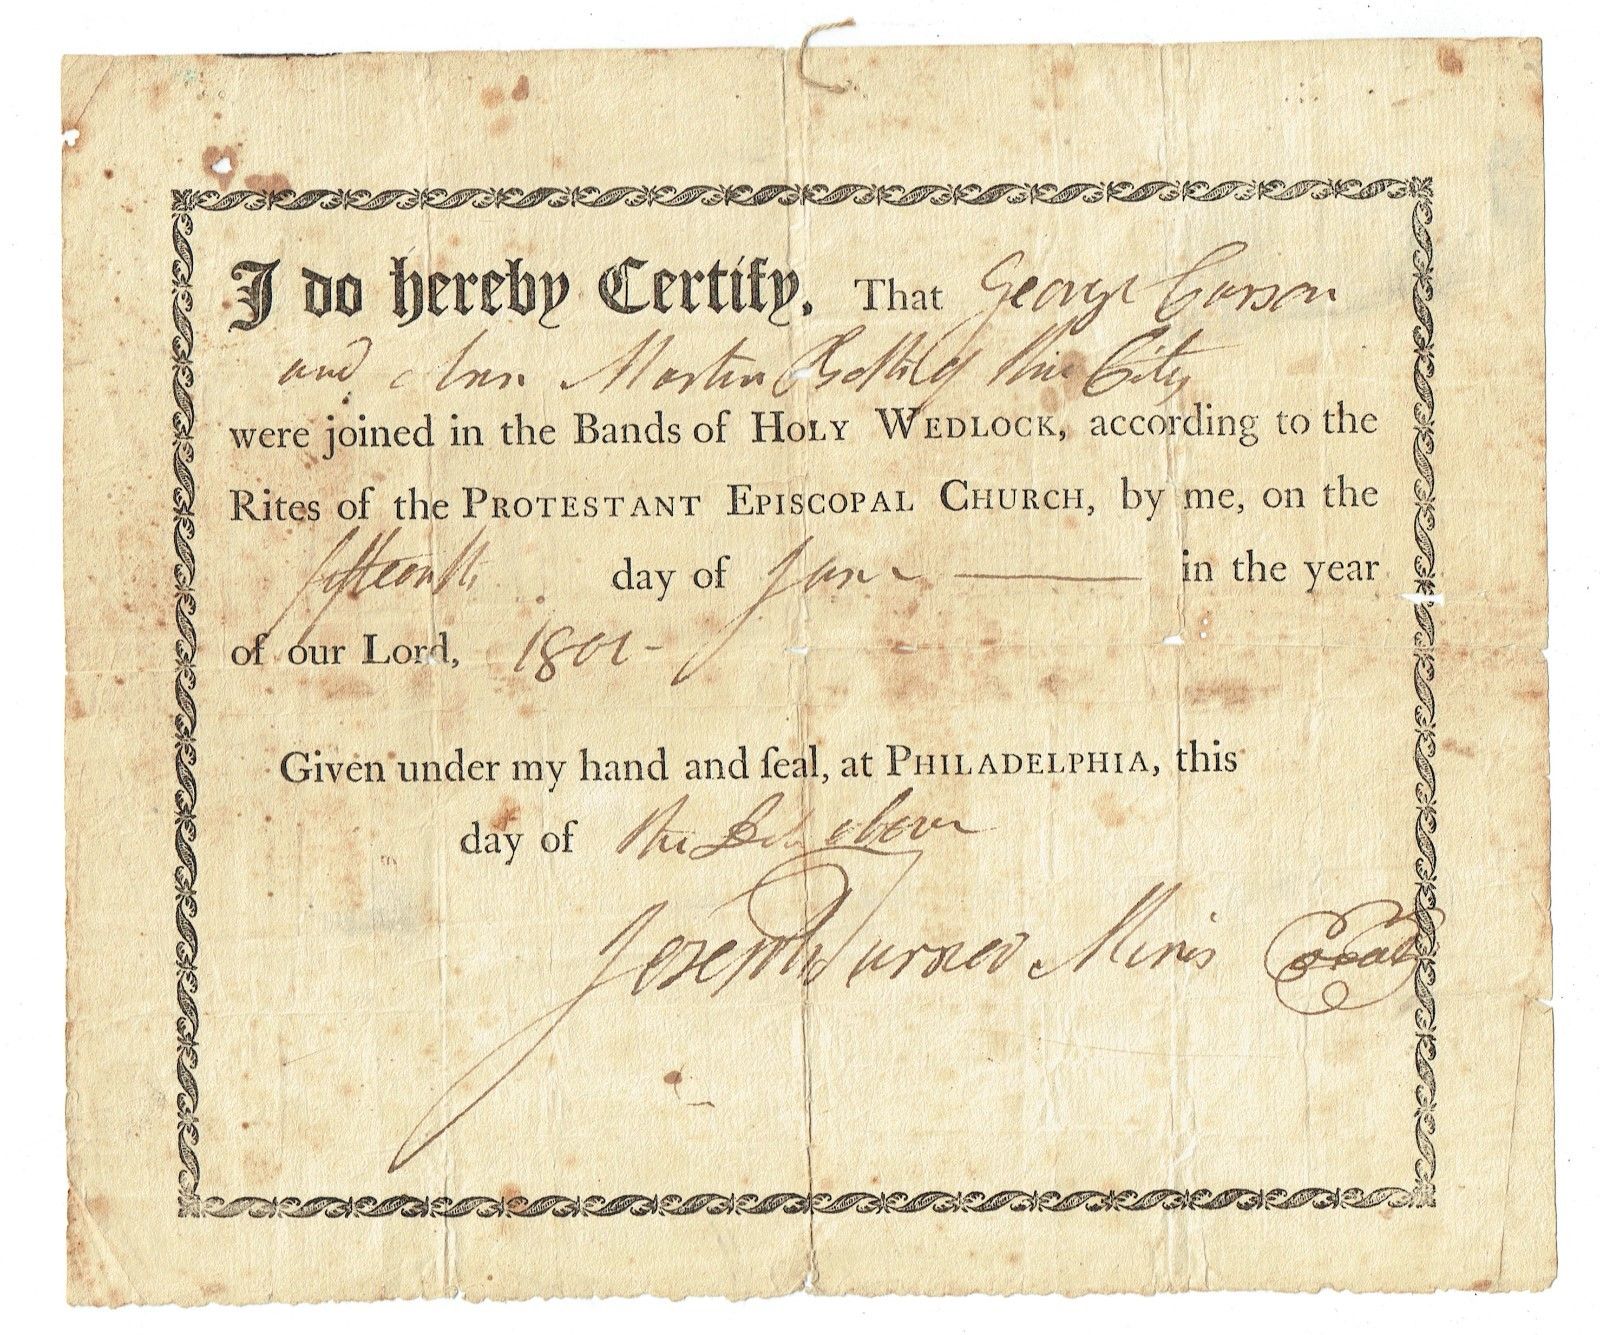 I do hereby Certify, That George Carson
and Ann Martin Both of this City
were joined in the Bands of HOLY WEDLOCK, according to the
Rites of the PROTESTANT EPISCOPAL CHURCH, by me, on the
fifteenth day of June in the year
of our Lord, 1801-
Given under my hand and ſeal, at PHILADELPHIA, this
day of the above
Joseph Turner Minis
Seal